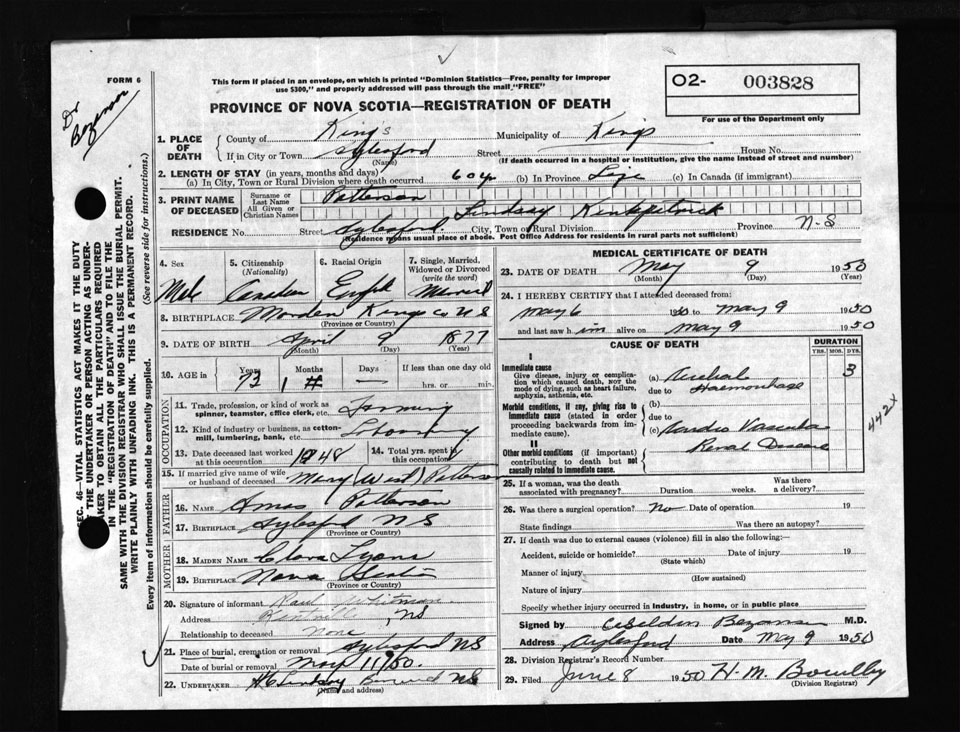 FORM 6
Dr Bezanson
This form if placed in an envelope, on which is printed "Dominion Statistics—Free, penalty for improper
use $300," and properly addressed will pass through the mail "FREE"
O2- 003828
For use of the Department only
PROVINCE OF NOVA SCOTIA—REGISTRATION OF DEATH
SEC. 46—VITAL STATISTICS ACT MAKES IT THE DUTY
THE UNDERTAKER OR PERSON ACTING AS UNDER-
TAKER TO OBTAIN ALL THE PARTICULARS REQUIRED
IN THE "REGISTRATION OF DEATH" AND TO FILE THE
SAME WITH THE DIVISION REGISTRAR WHO SHALL ISSUE THE BURIAL PERMIT.
WRITE PLAINLY WITH UNFADING INK. THIS IS A PERMANENT RECORD.
Every item of information should be carefully supplied. (See reverse side for instructions.)
1. PLACE OF DEATH County of King's Municipality of Kings
If in City or Town Aylesford (Name) Street House No.
(If death occurred in a hospital or institution, give the name instead of street and number)
2. LENGTH OF STAY (in years, months and days)
(a) In City, Town or Rural Division where death occurred 60 y (b) In Province Life (c) In Canada (if immigrant)
3. PRINT NAME OF DECEASED Surname or Last Name Patterson
All Given or Christian Names Lindsay Kirkpatrick
RESIDENCE No. Street Aylesford City, Town or Rural Division Province N-S
(Residence means usual place of abode. Post Office Address for residents in rural parts not sufficient)
4. Sex 5. Citizenship (Nationality) 6. Racial Origin 7. Single, Married, Widowed or Divorced (write the word)
Male Canadian English Married
8. BIRTHPLACE Morden Kings Co NS
(Province or Country)
9. DATE OF BIRTH April 9 1877
(Month) (Day) (Year)
10. AGE in Years 73 Months 1 Days — If less than one day old
hrs. or min.
OCCUPATION
11. Trade, profession, or kind of work as spinner, teamster, office clerk, etc. Farming
12. Kind of industry or business, as cotton-mill, lumbering, bank, etc.
13. Date deceased last worked at this occupation 1948 14. Total yrs. spent in this occupation
15. If married give name of wife or husband of deceased Mary (West) Patterson
FATHER
16. Name Amos Patterson
17. Birthplace Aylesford NS
MOTHER
18. Maiden Name Clara Lyons
19. Birthplace Nova Scotia
(Province or Country)
20. Signature of informant Whitman
Address NS
Relationship to deceased None
21. Place of burial, cremation or removal Aylesford NS
Date of burial or removal May 11/50.
22. UNDERTAKER Lindsay Berwick NS
(Name and address)
MEDICAL CERTIFICATE OF DEATH
23. DATE OF DEATH May 9 1950
(Month) (Day) (Year)
24. I HEREBY CERTIFY that I attended deceased from:
May 6 1950 to May 9 1950
and last saw him alive on May 9 1950
CAUSE OF DEATH DURATION
YRS. MOS. DYS.
I
Immediate cause
Give disease, injury or complication which caused death, NOT the mode of dying, such as heart failure, asphyxia, asthenia, etc.
(a) Cerebral 3
due to Haemorrhage
Morbid conditions, if any, giving rise to immediate cause (stated in order proceeding backwards from immediate cause).
(b)
due to
(c) Cardio Vascular
Renal Disease
442X
II
Other morbid conditions (if important) contributing to death but not causally related to immediate cause.
25. If a woman, was the death associated with pregnancy? Duration weeks. Was there a delivery?
26. Was there a surgical operation? No Date of operation 19
State findings Was there an autopsy?
27. If death was due to external causes (violence) fill in also the following:
Accident, suicide or homicide? Date of injury 19
(State which)
Manner of injury
(How sustained)
Nature of injury
Specify whether injury occurred in industry, in home, or in public place
Signed by Bezanson M.D.
Address Aylesford Date May 9 1950
28. Division Registrar's Record Number
29. Filed June 8 1950 H. M.
(Division Registrar)